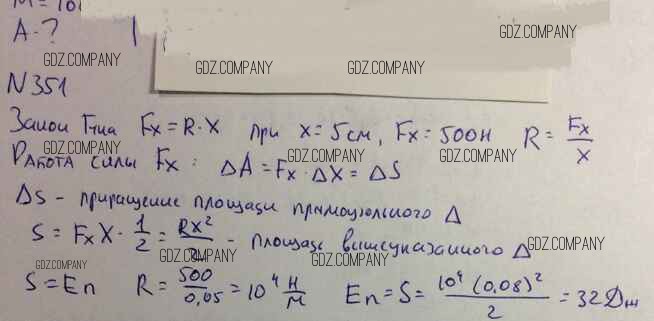 M = 10
A - ?
GDZ.COMPANY
GDZ.COMPANY GDZ.COMPANY GDZ.COMPANY
N 351
Закон Гука Fx = R · X при x = 5 см, Fx = 500 Н R = Fx / x
GDZ.COMPANY GDZ.COMPANY GDZ.COMPANY
Работа силы Fx : ΔA = Fx · ΔX = ΔS
ΔS - приращение площади прямоугольного Δ
S = Fx X · 1/2 = RX²/2 - площадь вышеуказанного Δ
GDZ.COMPANY GDZ.COMPANY GDZ.COMPANY GDZ.COMPANY
S = Eп R = 500/0,05 = 10⁴ Н/м Eп = S = 10⁴ (0,08)²/2 = 32 Дж